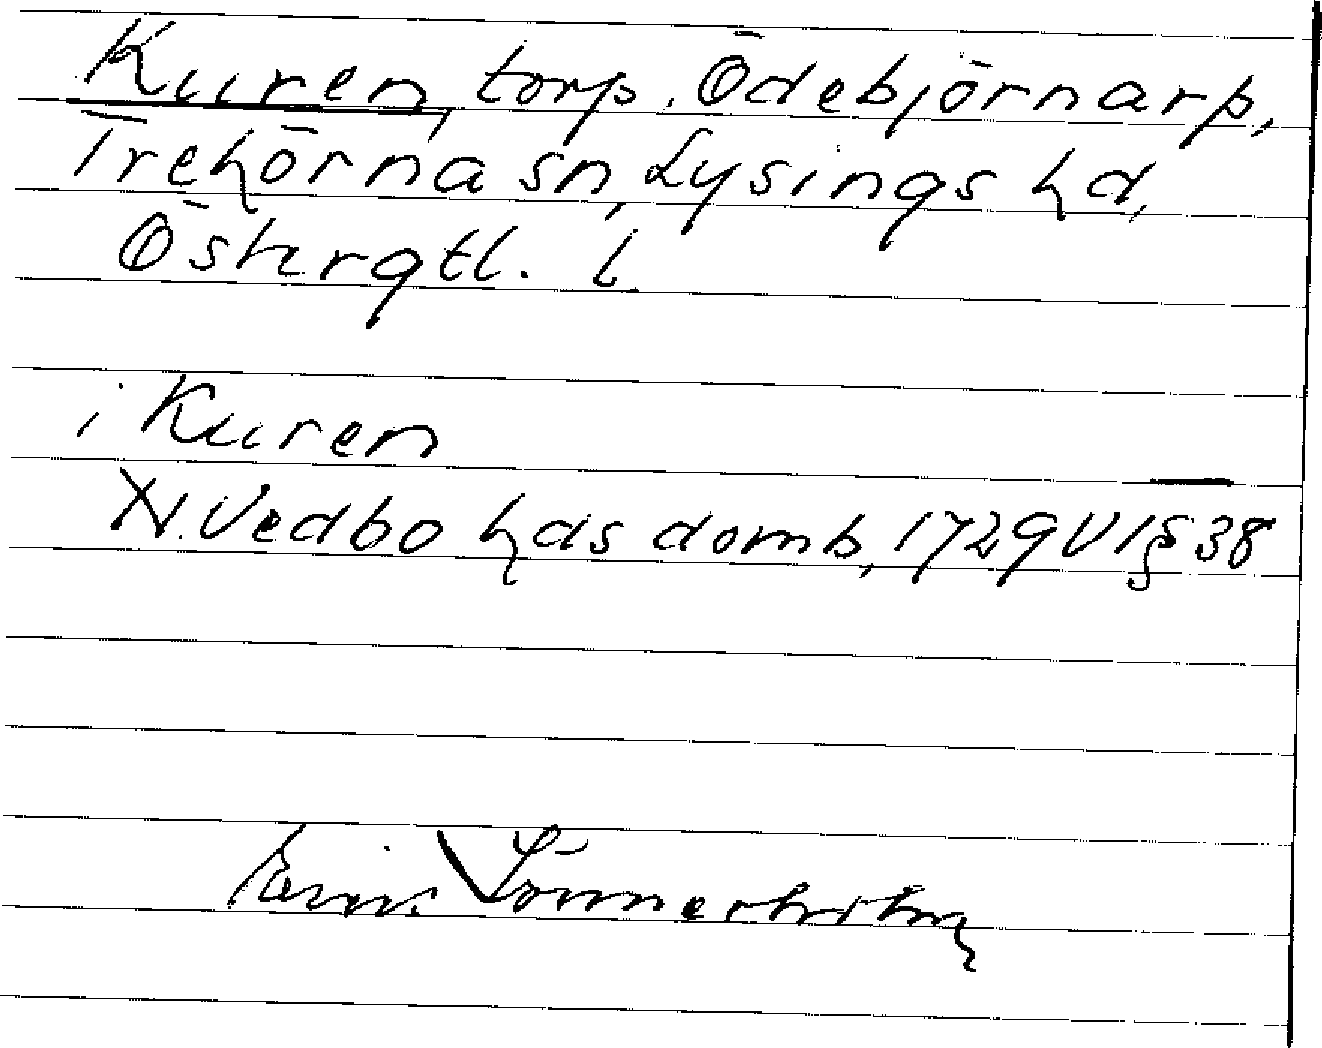 Kuren, torp, Ödebjörnarp,
Trehörna sn, Lysings hd,
Östergtl. l.
i Kuren
N. Vedbo hds domb, 1729 V 1 § 38